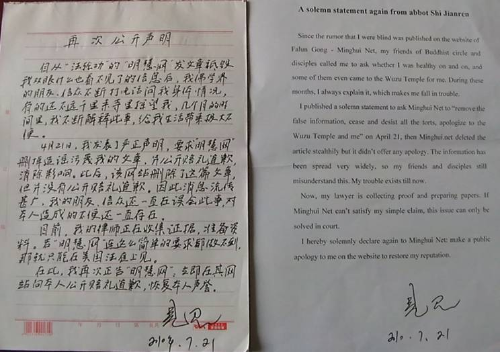 再次公开声明
自从“法轮功”的“明慧网”发文章诋毁
我双眼什么也看不见了的信息后，我佛学界
的朋友、信众不断打电话询问我身体情况，
有的还不远千里来寺里探望我，几个月的时
间里，我不断解释此事，给我生活带来极大不
便。
4月21日，我发表了严正声明，要求“明慧网”
删掉造谣污蔑我的文章，并公开赔礼道歉，
消除影响。此后，该网站删除了这篇文章，
但并没有公开赔礼道歉。因此消息流传
甚广，我的朋友、信众还一直在误会此事，对
本人造成的不便还一直存在。
目前，我的律师正在收集证据、准备资
料。若“明慧网”连这么简单的要求都做不到，
那就只能在美国法庭上见。
在此，我再次正告“明慧网”，立即在其网
站向本人公开赔礼道歉，恢复本人声誉。
见忍
2010.7.21
A solemn statement again from abbot Shi Jianren
Since the rumor that I were blind was published on the website of
Falun Gong - Minghui Net, my friends of Buddhism circle and
disciples called me to ask whether I was healthy on and on, and
some of them even came to the Wuzu Temple for me. During those
months, I always explain it, which makes me fall in trouble.
I published a solemn statement to ask Minghui Net to "remove the
false information, cease and desist all the torts, apologize to the
Wuzu Temple and me" on April 21, then Minghui net deleted the
article stealthily but it didn't offer any apology. The information has
been spread very widely, so my friends and disciples still
misunderstand this. My trouble exists till now.
Now, my lawyer is collecting proof and preparing papers. If
Minghui Net can't satisfy my simple claim, this issue can only be
solved in court.
I hereby solemnly declare again to Minghui Net: make a public
apology to me on the website to restore my reputation.
见忍
2010.7.21